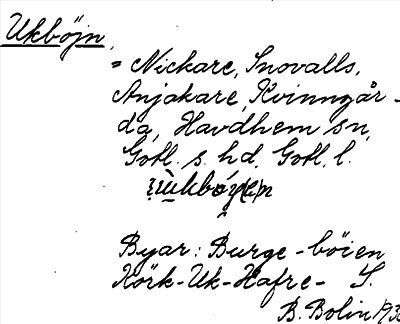 Ukböjn,
= Nickare, Snovalls,
Anjakare, Kvinngår-
da, Havdhem sn,
Gotl. s. hd, Gotl. l.
Byar: Burge-böien
Körk-Uk-Hafre- S.
B. Bolin 193